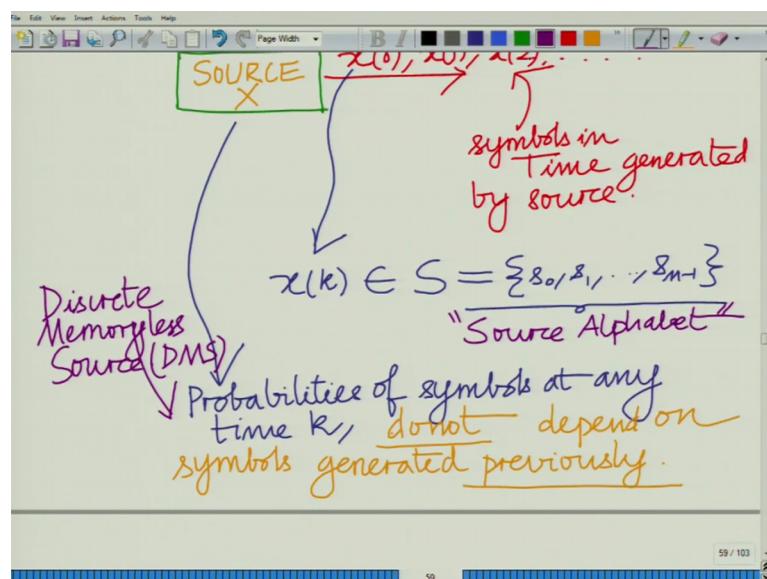 File Edit View Insert Actions Tools Help
Page Width
B I
SOURCE
X
x(0), x(1), x(2), . . . .
symbols in
Time generated
by source.
x(k) ∈ S = {s0, s1, .., sm-1}
"Source Alphabet"
Discrete
Memoryless
Source (DMS)
Probabilities of symbols at any
time k, do not depend on
symbols generated previously.
59 / 103